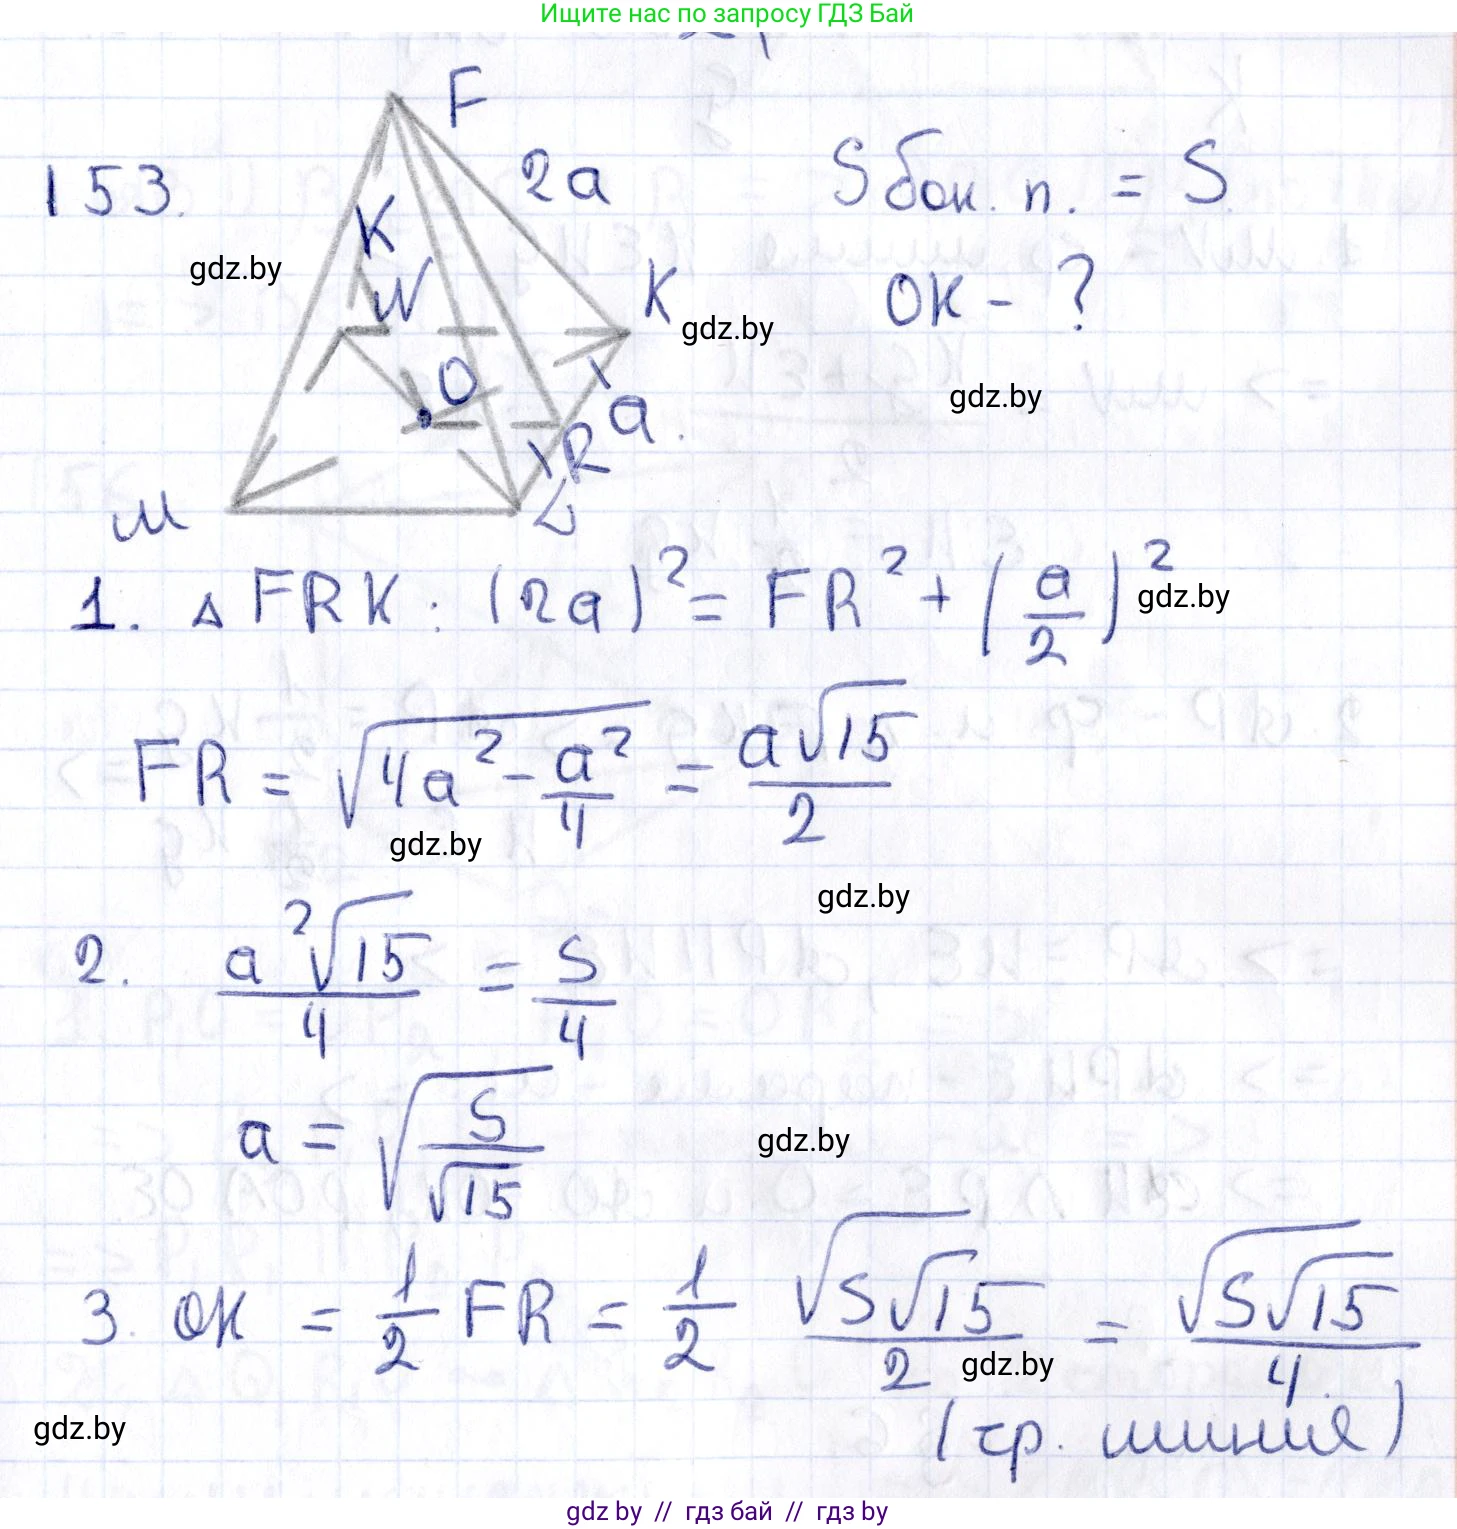 Ищите нас по запросу ГДЗ Бай
153.
F
2a
K
N
K
O
a.
R
M
L
Sбок. п. = S
OK - ?
gdz.by
gdz.by
gdz.by
1. △ FRK : (2a)² = FR² + (a/2)²
gdz.by
FR = √(4a² - a²/4) = a√15/2
gdz.by
gdz.by
2. a²√15/4 = S/4
a = √(S/√15)
gdz.by
3. OK = 1/2 FR = 1/2 √(S√15)/2 = √(S√15)/4.
gdz.by
(ср. линия)
gdz.by
gdz.by // гдз бай // гдз by